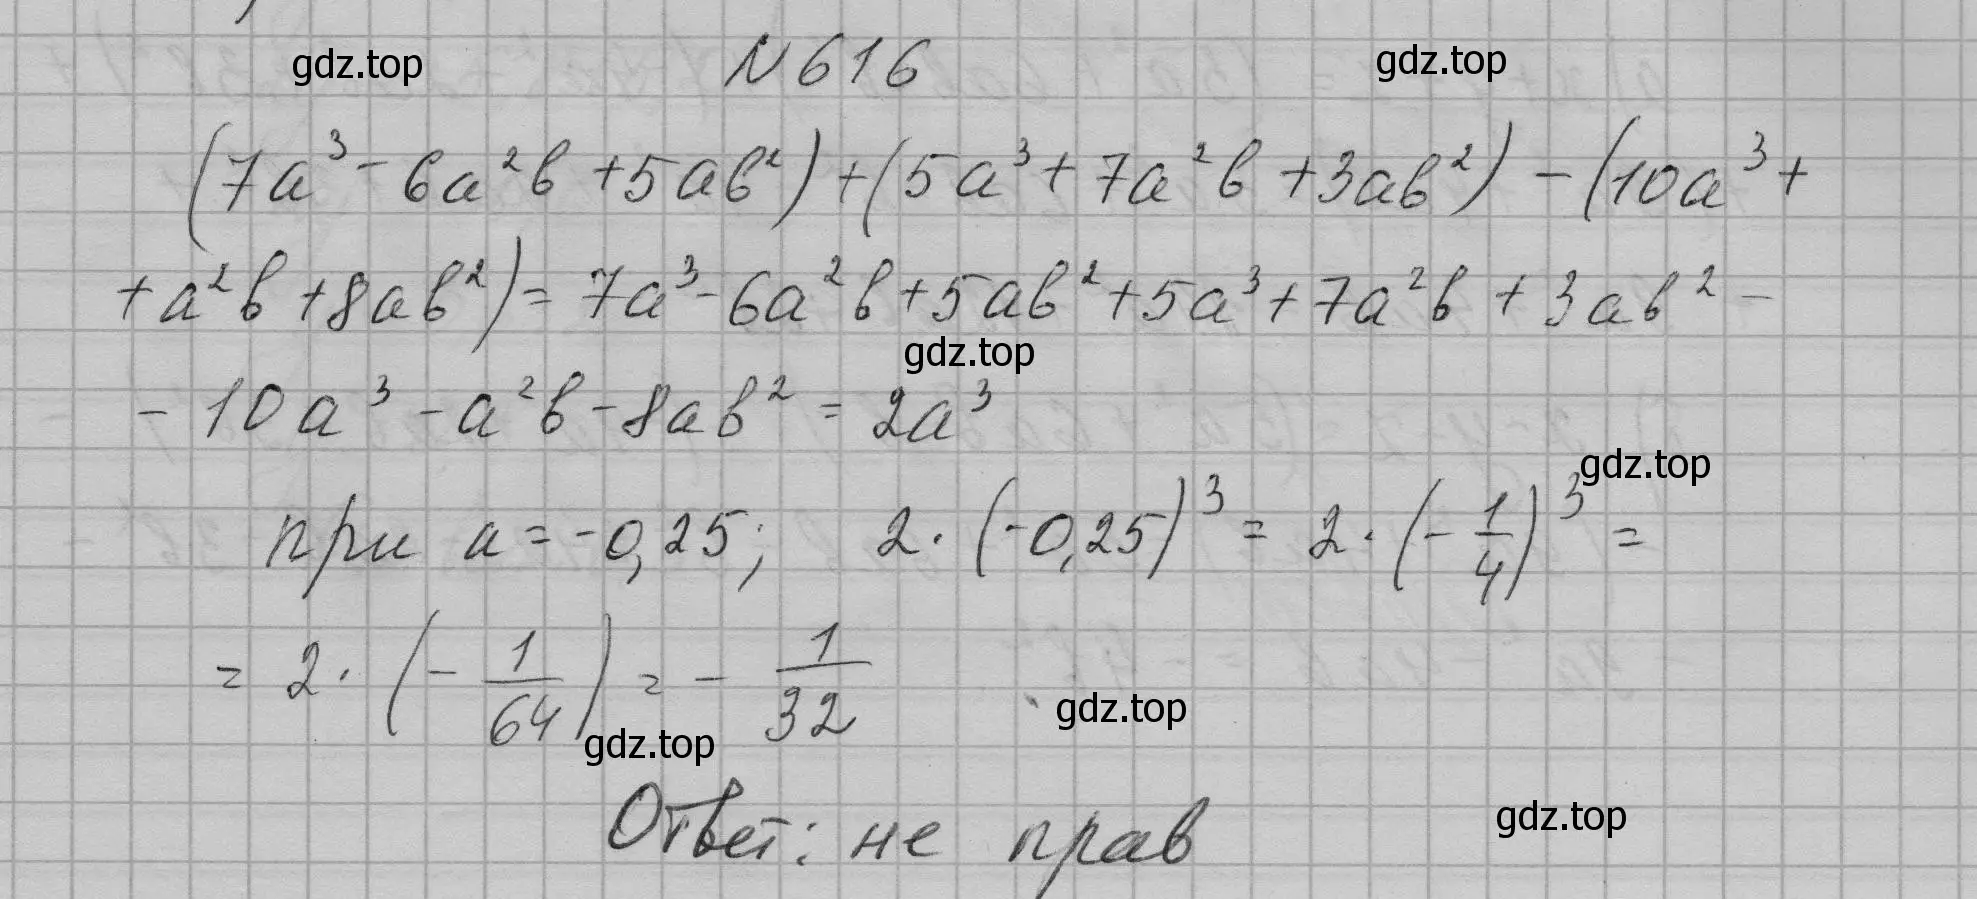 gdz.top N 616 gdz.top
(7a³ - 6a²b + 5ab²) + (5a³ + 7a²b + 3ab²) - (10a³ +
+ a²b + 8ab²) = 7a³ - 6a²b + 5ab² + 5a³ + 7a²b + 3ab² -
gdz.top
- 10a³ - a²b - 8ab² = 2a³
gdz.top
при a = -0,25; 2 · (-0,25)³ = 2 · (-1/4)³ =
= 2 · (-1/64) = - 1/32
gdz.top
gdz.top
gdz.top
Ответ: не прав